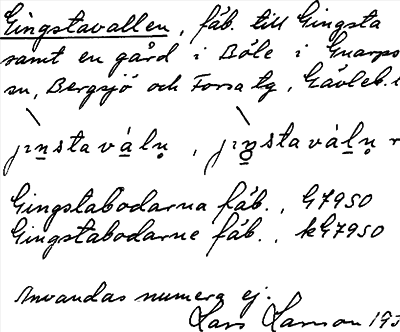 Gingstavallen, fäb. till Gingsta
samt en gård i Böle i Gnarps
sn, Bergsjö och Forsa tg, Gävleb. l
Gingstabodarna fäb., G7950
Gingstabodarne fäb., kG7950
Användas numera ej.
Lars Larson 193